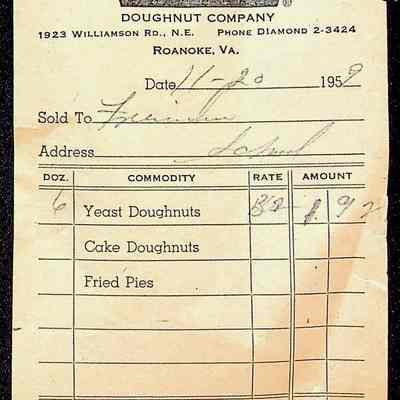 DOUGHNUT COMPANY
1923 WILLIAMSON RD., N.E. PHONE DIAMOND 2-3424
ROANOKE, VA.
Date 11-20 1959
Sold To
Address School
DOZ. COMMODITY RATE AMOUNT
6 Yeast Doughnuts 32 1.92
Cake Doughnuts
Fried Pies